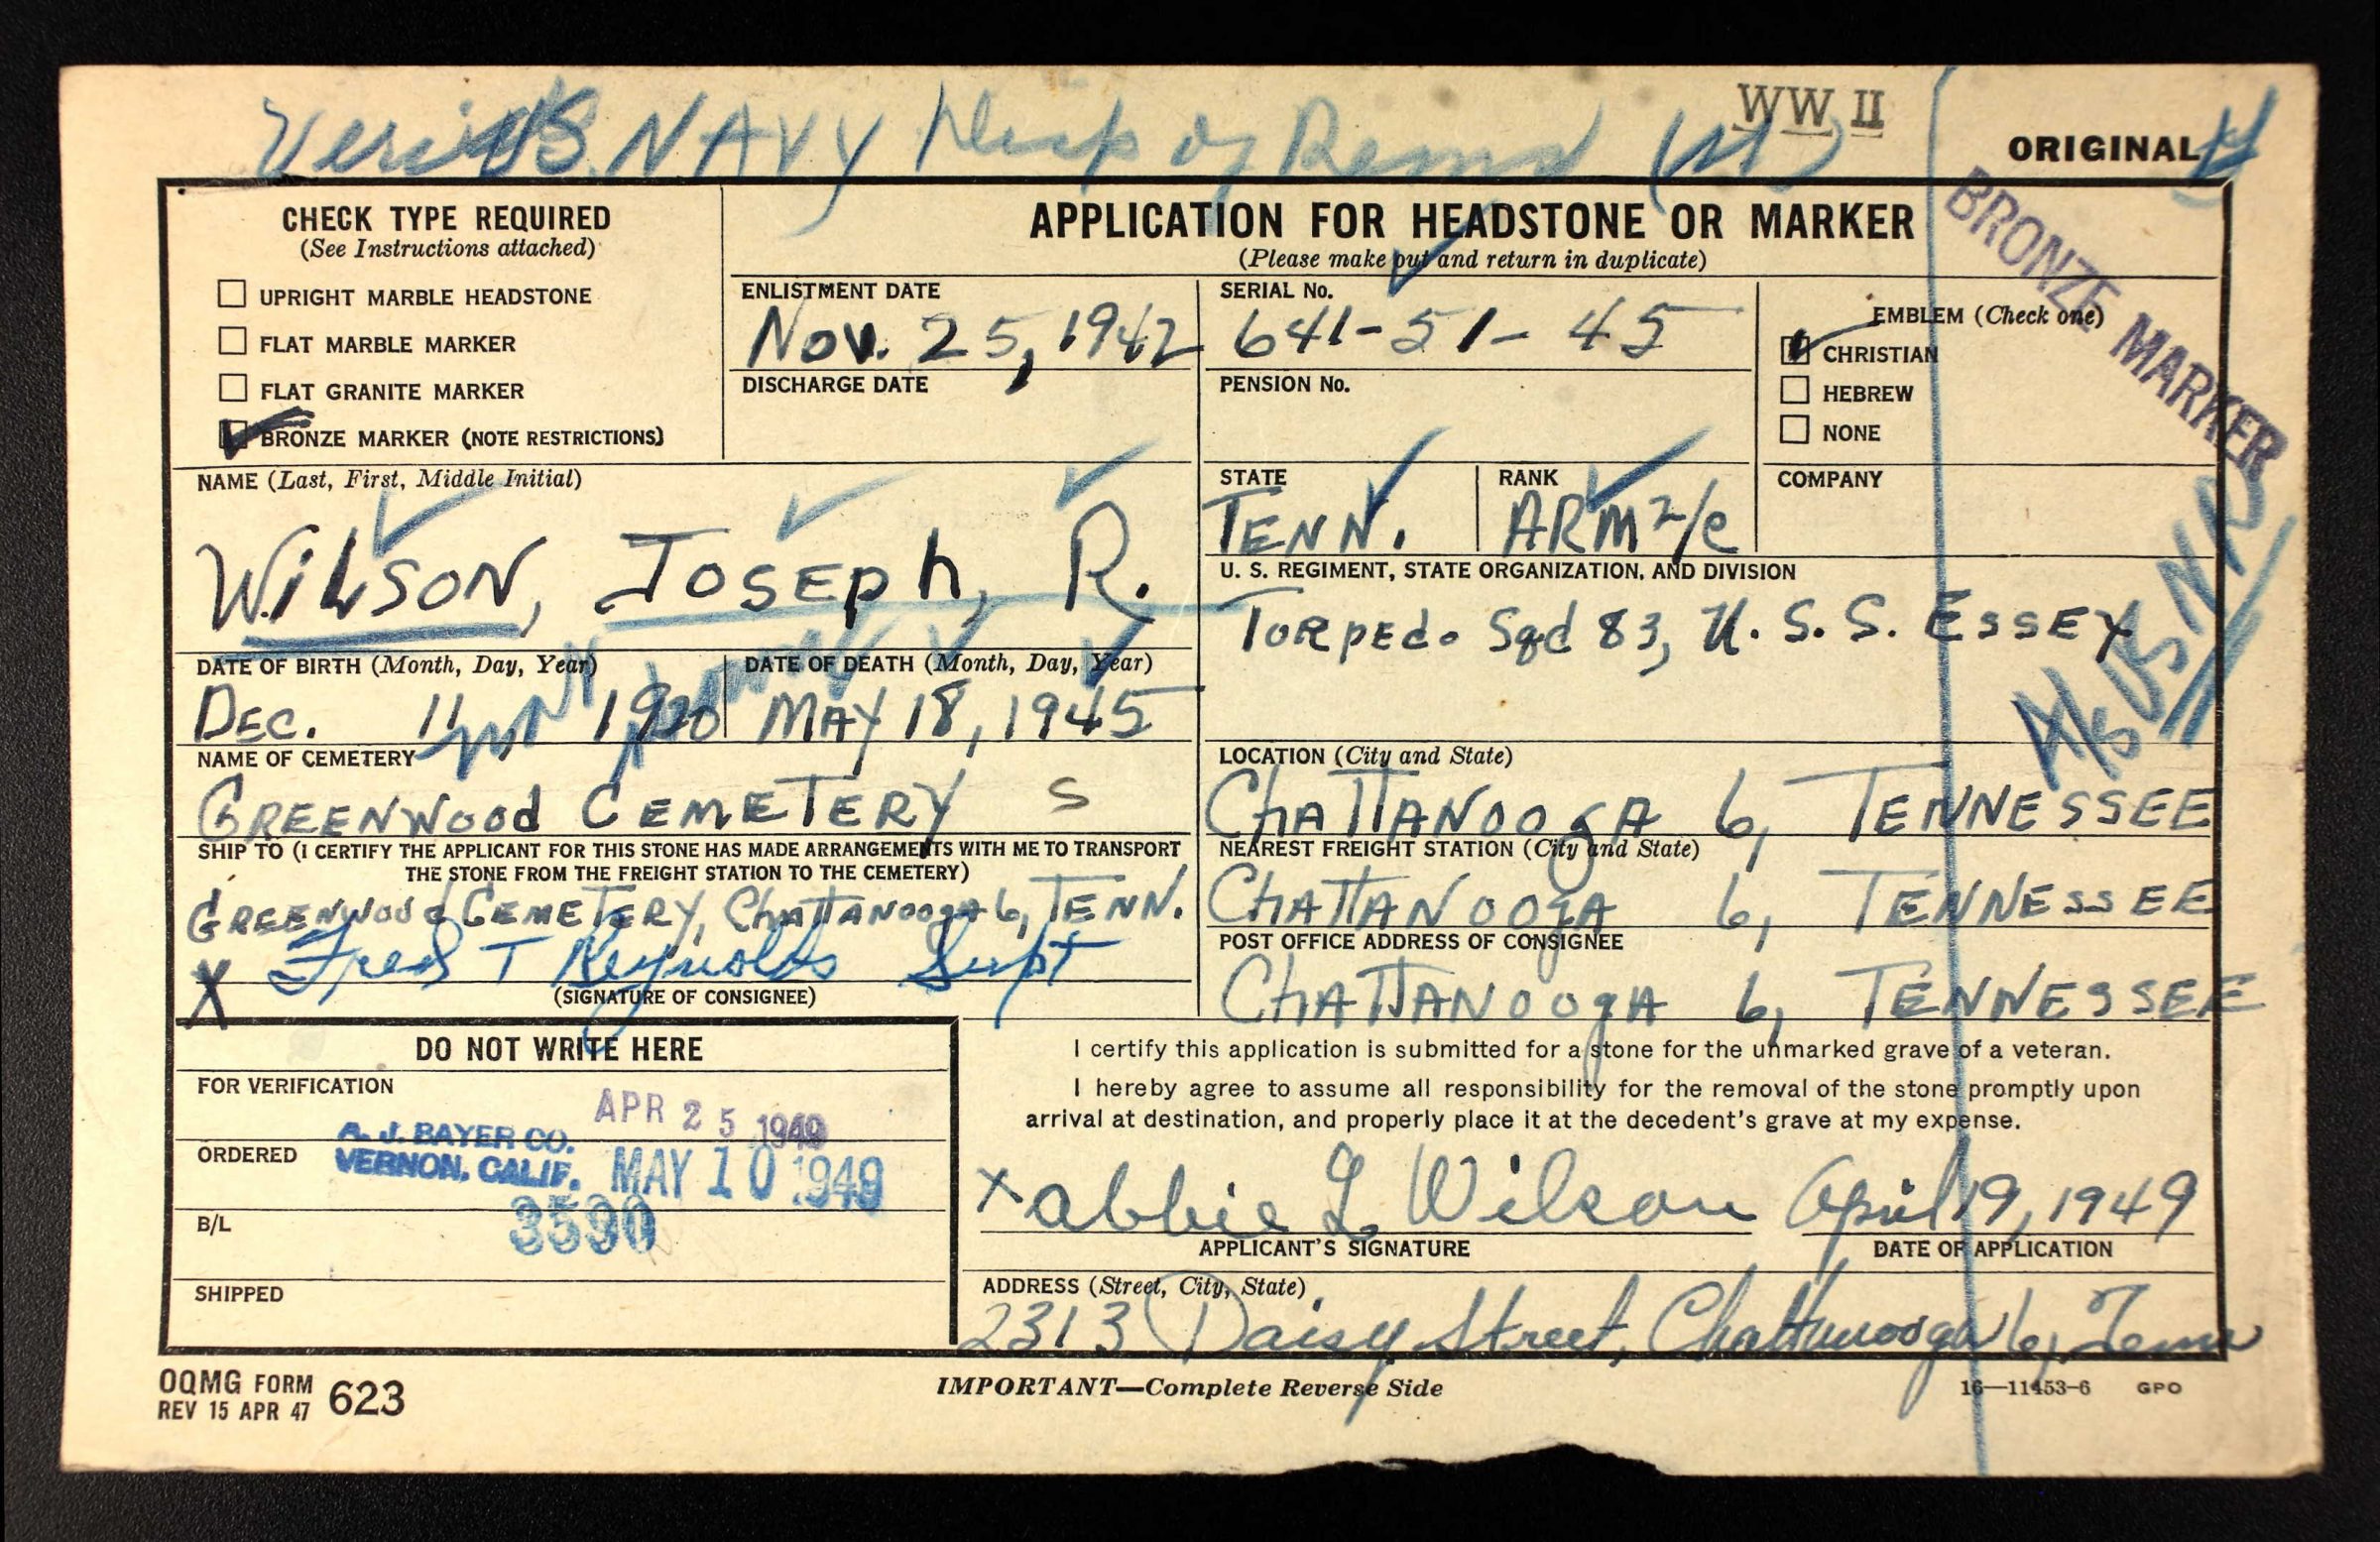 U.S. NAVY
WW II
ORIGINAL
BRONZE MARKER
CHECK TYPE REQUIRED
(See Instructions attached)
UPRIGHT MARBLE HEADSTONE
FLAT MARBLE MARKER
FLAT GRANITE MARKER
BRONZE MARKER (NOTE RESTRICTIONS)
APPLICATION FOR HEADSTONE OR MARKER
(Please make out and return in duplicate)
ENLISTMENT DATE
Nov. 25, 1942
DISCHARGE DATE
SERIAL No.
641-51-45
PENSION No.
EMBLEM (Check one)
CHRISTIAN
HEBREW
NONE
NAME (Last, First, Middle Initial)
WiLSON, JOSEph, R.
STATE
TENN.
RANK
ARM 2/c
COMPANY
U. S. REGIMENT, STATE ORGANIZATION, AND DIVISION
TORpEdo Sqd 83, U. S. S. ESSEX
USNR
DATE OF BIRTH (Month, Day, Year)
DEC. 11 1920
DATE OF DEATH (Month, Day, Year)
MAY 18, 1945
NAME OF CEMETERY
GREENWOOd CEMETERY S
LOCATION (City and State)
ChATTANOOgA 6, TENNESSEE
SHIP TO (I CERTIFY THE APPLICANT FOR THIS STONE HAS MADE ARRANGEMENTS WITH ME TO TRANSPORT
THE STONE FROM THE FREIGHT STATION TO THE CEMETERY)
GREENWOOd CEMETERY, ChATTANOOgA 6, TENN.
X Fred T Reynolds Supt
(SIGNATURE OF CONSIGNEE)
NEAREST FREIGHT STATION (City and State)
ChATTANOOgA 6, TENNESSEE
POST OFFICE ADDRESS OF CONSIGNEE
ChATTANOOgA 6, TENNESSEE
DO NOT WRITE HERE
FOR VERIFICATION
APR 25 1949
ORDERED
A. J. BAYER CO.
VERNON, CALIF.
MAY 10 1949
B/L
3590
SHIPPED
I certify this application is submitted for a stone for the unmarked grave of a veteran.
I hereby agree to assume all responsibility for the removal of the stone promptly upon
arrival at destination, and properly place it at the decedent's grave at my expense.
x Abbie L Wilson April 19, 1949
APPLICANT'S SIGNATURE
DATE OF APPLICATION
ADDRESS (Street, City, State)
2313 Daisy Street, Chattanooga 6, Tenn
OQMG FORM 623
REV 15 APR 47
IMPORTANT—Complete Reverse Side
16—11453-6 GPO